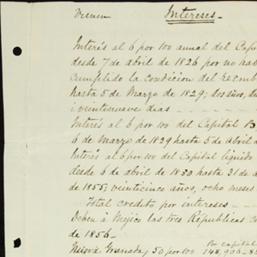 Vienen Intereses.
Interés al 6 por 100 anual del Capi
desde 7 de abril de 1826 por no hab
cumplido la condicion del reemb
hasta 5 de Marzo de 1829; dos años,
i veintinueve dias
Interés al 6 por 100 del Capital B
6 de Marzo de 1829 hasta 5 de abril
Interés al 6 por 100 del Capital líquido
desde 6 de abril de 1830 hasta 31 de
de 1855; veinticinco años, ocho meses
Total credito por intereses
Deben á Méjico las tres Repúblicas
de 1856.
Por capital
Nueva Granada, 50 por 100